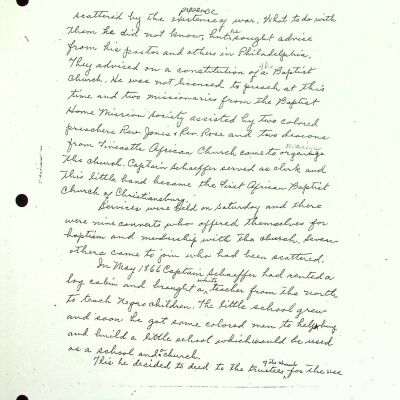 presence
scattered by the existence of war. What to do with
them he did not know, but he sought advice
from his pastor and others in Philadelphia.
They advised on a constitution of a the Baptist
Church. He was not licensed to preach at this
time and two missionaries from the Baptist
Home Mission Society assisted by two colored
preachers Rev. Jones & Rev. Rose and two deacons
from Fincastle African Church came to organize
the church. Captain Schaeffer served as clerk and
this little band became the First African Baptist
Church of Christiansburg.
Services were held on Saturday and there
were nine converts who offered themselves for
baptism and membership with the church. Seven
others came to join who had been scattered.
In May 1866 Captain Schaeffer had rented a
log cabin and brought a white teacher from the north
to teach Negro children. The little school grew
and soon he got some colored men to help buy
and build a little school which would be used
as a school and a church.
This he decided to deed to the trustees of the church for the use